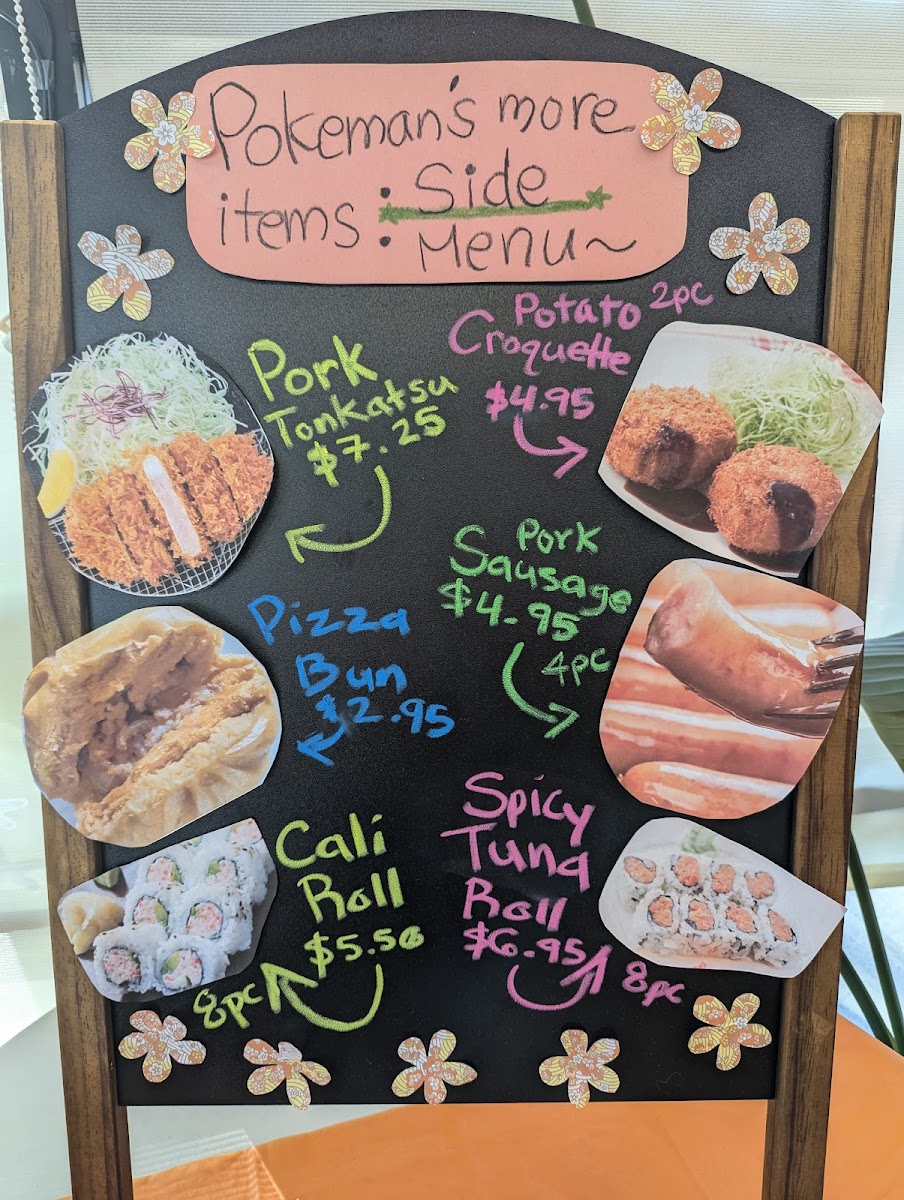 Pokeman's more
items : Side
Menu~
Pork
Tonkatsu
$7.25
Potato 2pc
Croquette
$4.95
Pizza
Bun
$2.95
Pork
Sausage
$4.95
4pc
Cali
Roll
$5.50
8pc
Spicy
Tuna
Roll
$6.95
8pc